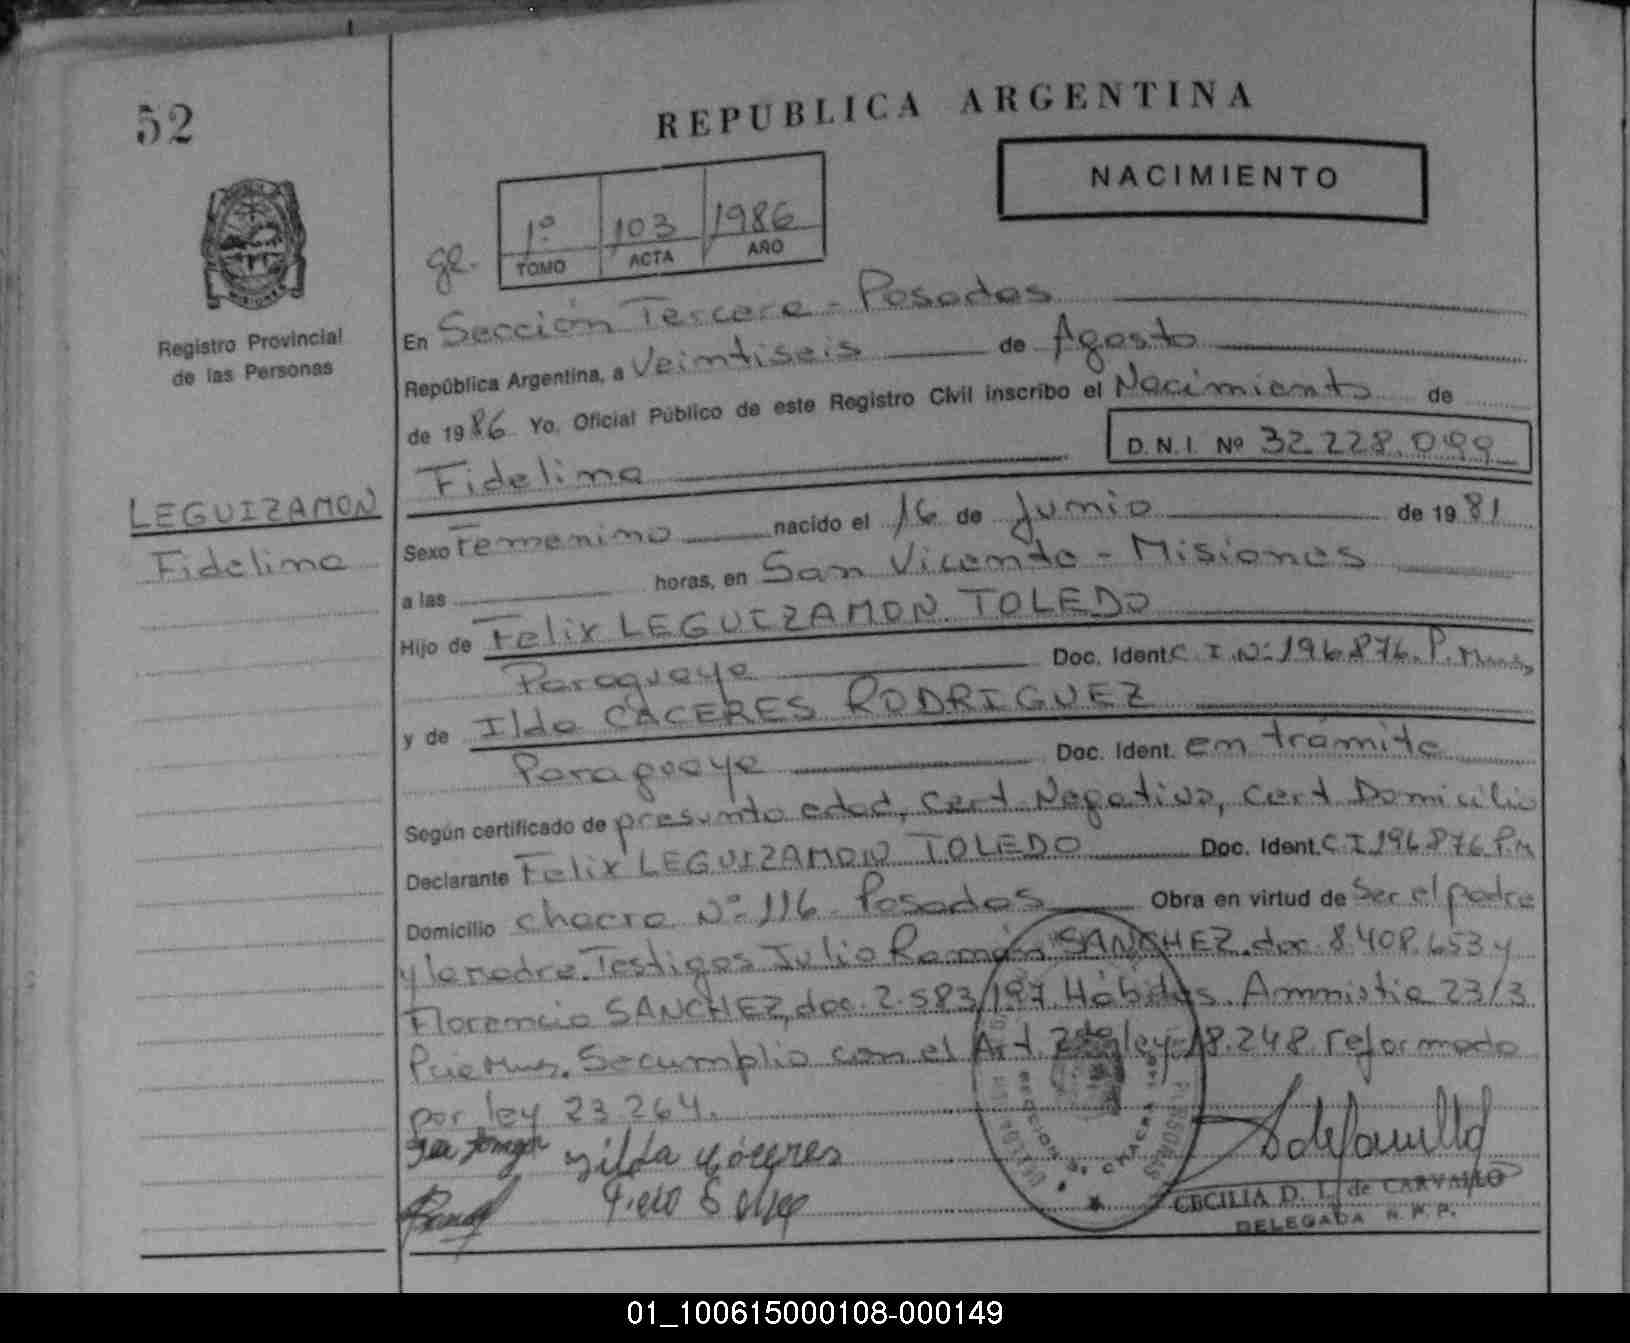 52
REPUBLICA ARGENTINA
NACIMIENTO
1º 103 1986
TOMO ACTA AÑO
Registro Provincial
de las Personas
LEGUIZAMON
Fidelina
En Sección Tercera - Posadas
República Argentina, a Veintiseis de Agosto
de 1986 Yo, Oficial Público de este Registro Civil inscribo el Nacimiento de
D. N. I. Nº 32.228.099
Fidelina
Sexo Femenino nacido el 16 de Junio de 1981
a las horas, en San Vicente - Misiones
Hijo de Felix LEGUIZAMON TOLEDO
Paraguaya Doc. Ident. C.I.Nº 196.876. P.
y de Ilda CACERES RODRIGUEZ
Paraguaya Doc. Ident. en trámite
Según certificado de presunta edad, Cert. Negativo, Cert Domicilio
Declarante Felix LEGUIZAMON TOLEDO Doc. Ident. C.I 196.876 P.M
Domicilio Chacra Nº 116 Posadas Obra en virtud de Ser el padre
y la madre. Testigos Julio Ramón SANCHEZ. doc. 8.408.653 y
Florencio SANCHEZ, doc. 2.583.197 Hábiles. Amnistia 23/3
Se cumplio con el Art. 2 de ley 18.248 reformado
por ley 23.264.
CECILIA D. I. de CARVALLO
DELEGADA R. P. P.
01_100615000108-000149